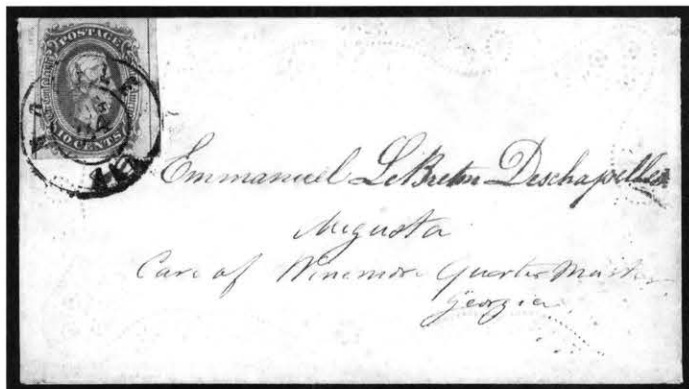 POSTAGE
10 CENTS
Emmanuel LeBreton Deschapelles
Augusta
Care of Winnemore Quarter Master
Georgia